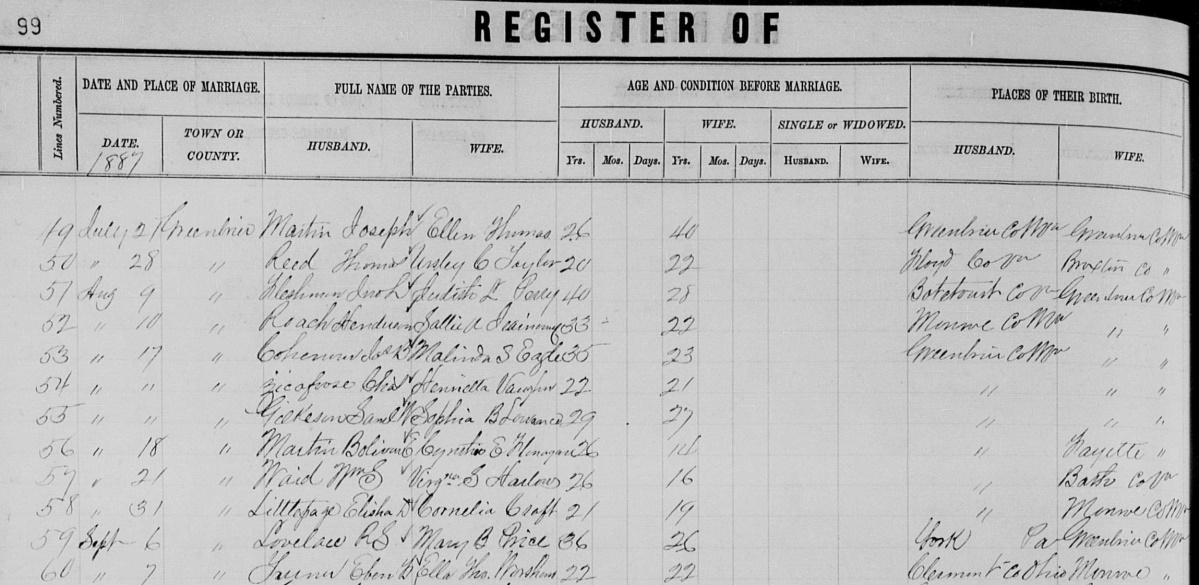 99
REGISTER OF
Lines Numbered.
DATE AND PLACE OF MARRIAGE. FULL NAME OF THE PARTIES. AGE AND CONDITION BEFORE MARRIAGE. PLACES OF THEIR BIRTH.
DATE. TOWN OR COUNTY. HUSBAND. WIFE. HUSBAND. WIFE. SINGLE or WIDOWED. HUSBAND. WIFE.
1887 Yrs. Mos. Days. Yrs. Mos. Days. HUSBAND. WIFE.
49 July 21 Greenbrier Martin Joseph Ellen Thomas 26 40 Greenbrier Co WVa Greenbrier Co WVa
50 " 28 " Reed Thomas Ursley C Taylor 20 22 Floyd Co Va Braxton Co "
51 Aug 9 " Fleshman Jno L Judith 40 28 Botetourt Co Va Greenbrier Co WVa
52 " 10 " Roach Sallie A 33 22 Monroe Co WVa " "
53 " 17 " Malinda S 35 23 Greenbrier Co WVa " "
54 " " " Zicafoose Chas Henrietta Vaughn 22 21 " " "
55 " " " Gilkeson Saml Sophia B 29 27 " " "
56 " 18 " Martin Bolivar E E Flanagan 26 " Fayette "
57 " 21 " Waid Wm S S Harlow 26 16 " Bath Co Va
58 " 31 " Littlepage Elisha D Cornelia Craft 21 19 " Monroe Co WVa
59 Sept 6 " Lovelace R S Mary B Price 36 26 York Pa Greenbrier Co WVa
60 " 7 " Eben Ella 22 22 Clermont Co Ohio Monroe "